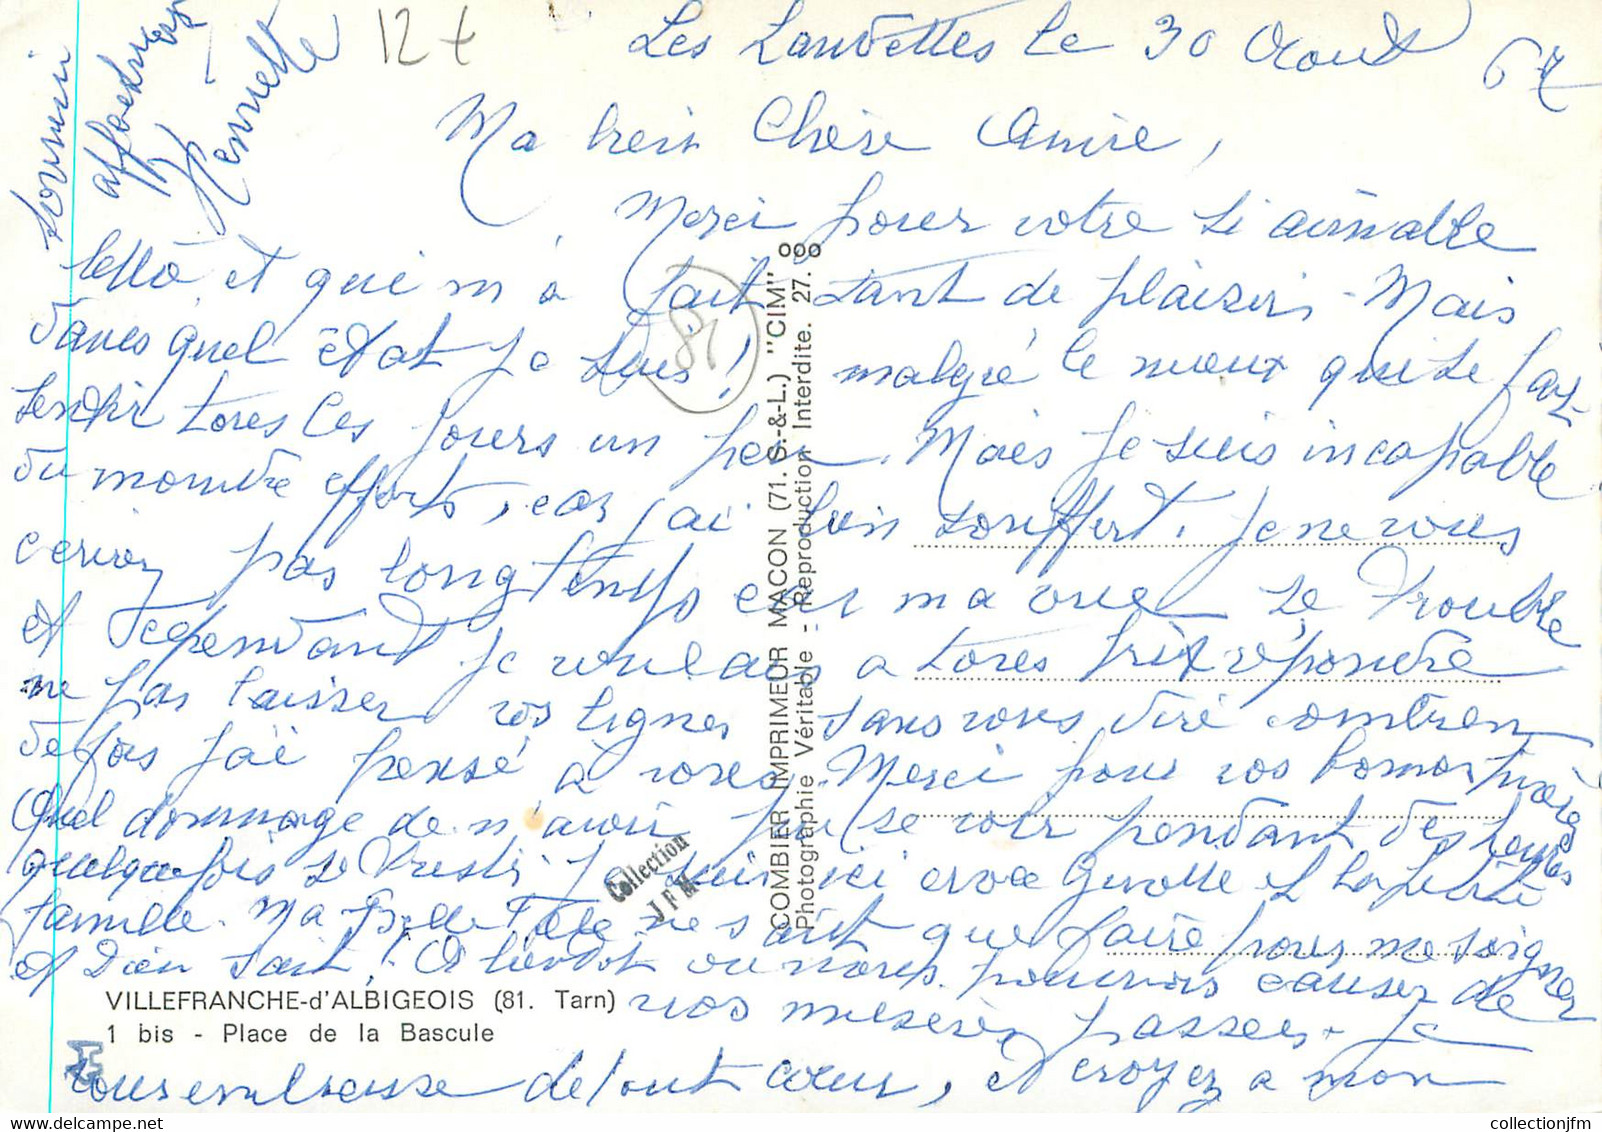 12 +
Les Lauvettes le 30 Aout 67
Ma treis Chère Amie,
Merci pour votre si aimable
lettre et qui m'a fait tant de plaisir - Mais
dans quel état je suis ! malgré le mieux qui se fait
sentir tous les jours un peu. Mais je suis incapable
du moindre efforts, car j'ai bien souffert. Je ne vous
écrirai pas longtemps car ma vue se trouble
et cependant je voulais a tous prix répondre
ne pas laisser vos lignes sans vous dire combien
de fois j'ai pensé à vous. Merci pour vos bonnes prières
Quel dommage de n'avoir pu se voir pendant des heures
quelquefois si tristes je suis ici avec Ginette et la petite
famille. Ma belle fille ne sait que faire pour me soigner
et Dieu sait ! A bientôt ou nous pourrons causer de
nos misères passées. Je
vous embrasse de tout cœur, et croyez a mon
souvenir
affectueux
Henriette
81
COMBIER IMPRIMEUR MACON (71. S.-&-L.) "CIM"
Photographie Véritable - Reproduction Interdite. 27.
Collection
J F M
VILLEFRANCHE-d'ALBIGEOIS (81. Tarn)
1 bis - Place de la Bascule
collectionjfm